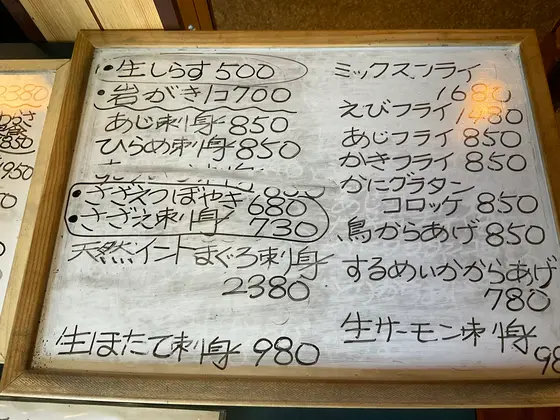 ・生しらす 500
・岩がき1コ 700
あじ刺身 850
ひらめ刺身 850
・さざえつぼやき 680
・さざえ刺身 730
天然インドまぐろ刺身
2380
生ほたて刺身 980
ミックスフライ
1680
えびフライ 1480
あじフライ 850
かきフライ 850
かにグラタン
コロッケ 850
鳥からあげ 850
するめいかからあげ
780
生サーモン刺身